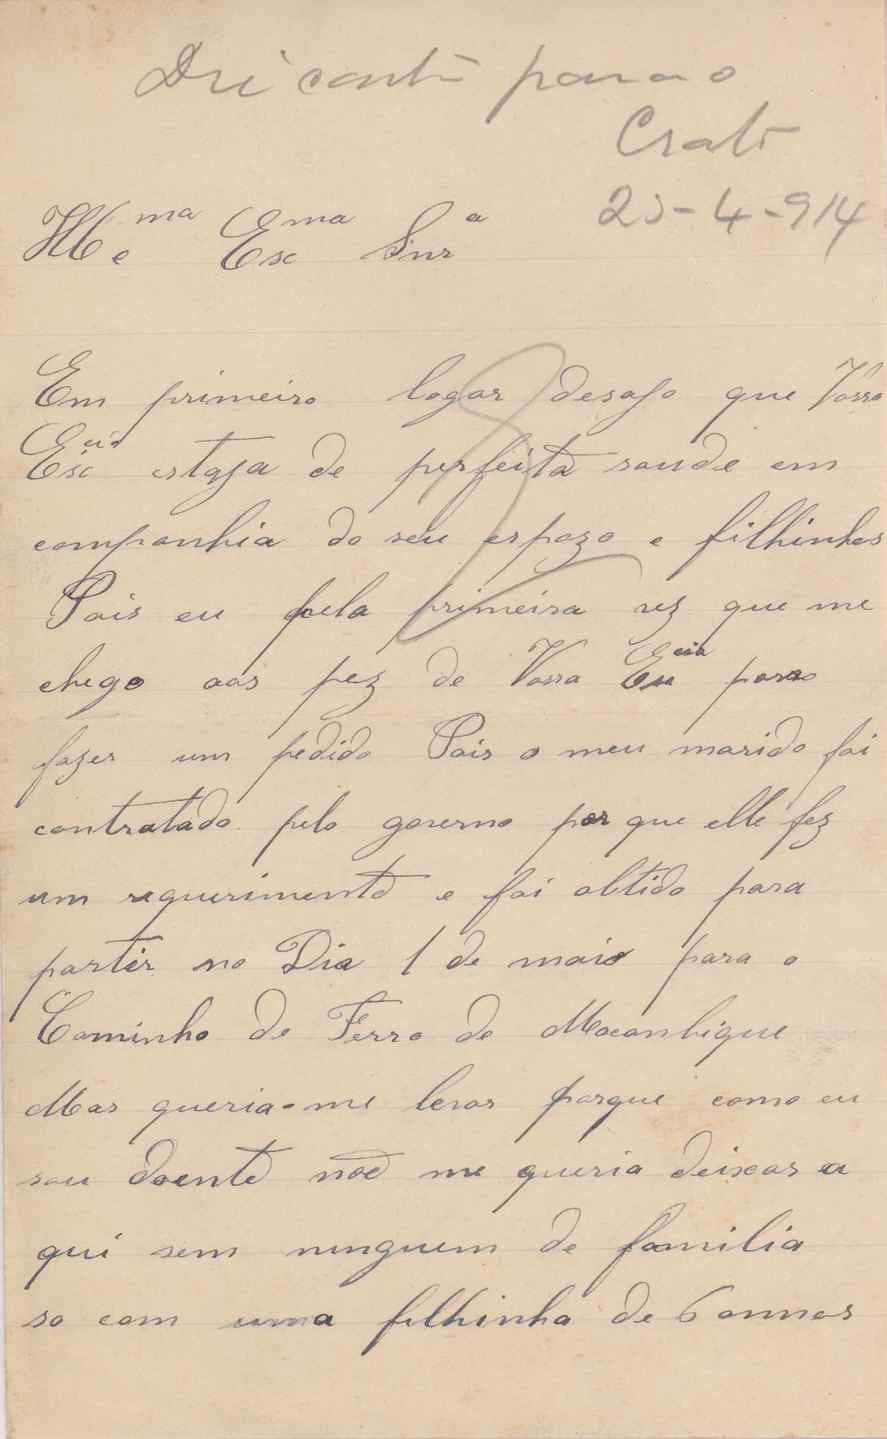 Dei conta para o
Crato
25-4-914
Ill^ma e Ex^ma Snr^a
Em primeiro logar desajo que Vossa
Ex^cia estaja de perfeita saude em
companhia do seu espozo e filhinhos
Pois eu pela primeira vez que me
chego aos pez de Vossa Ex^cia para
fazer um pedido Pois o meu marido foi
contratado pelo governo por que elle fez
um requerimento e foi obtido para
partir no Dia 1 de maio para o
Caminho de Ferro de Mocanbique
Mas queria-me levar porque como eu
sou doente não me queria deixar a
qui sem ninguem de familia
so com uma filhinha de 6 annos